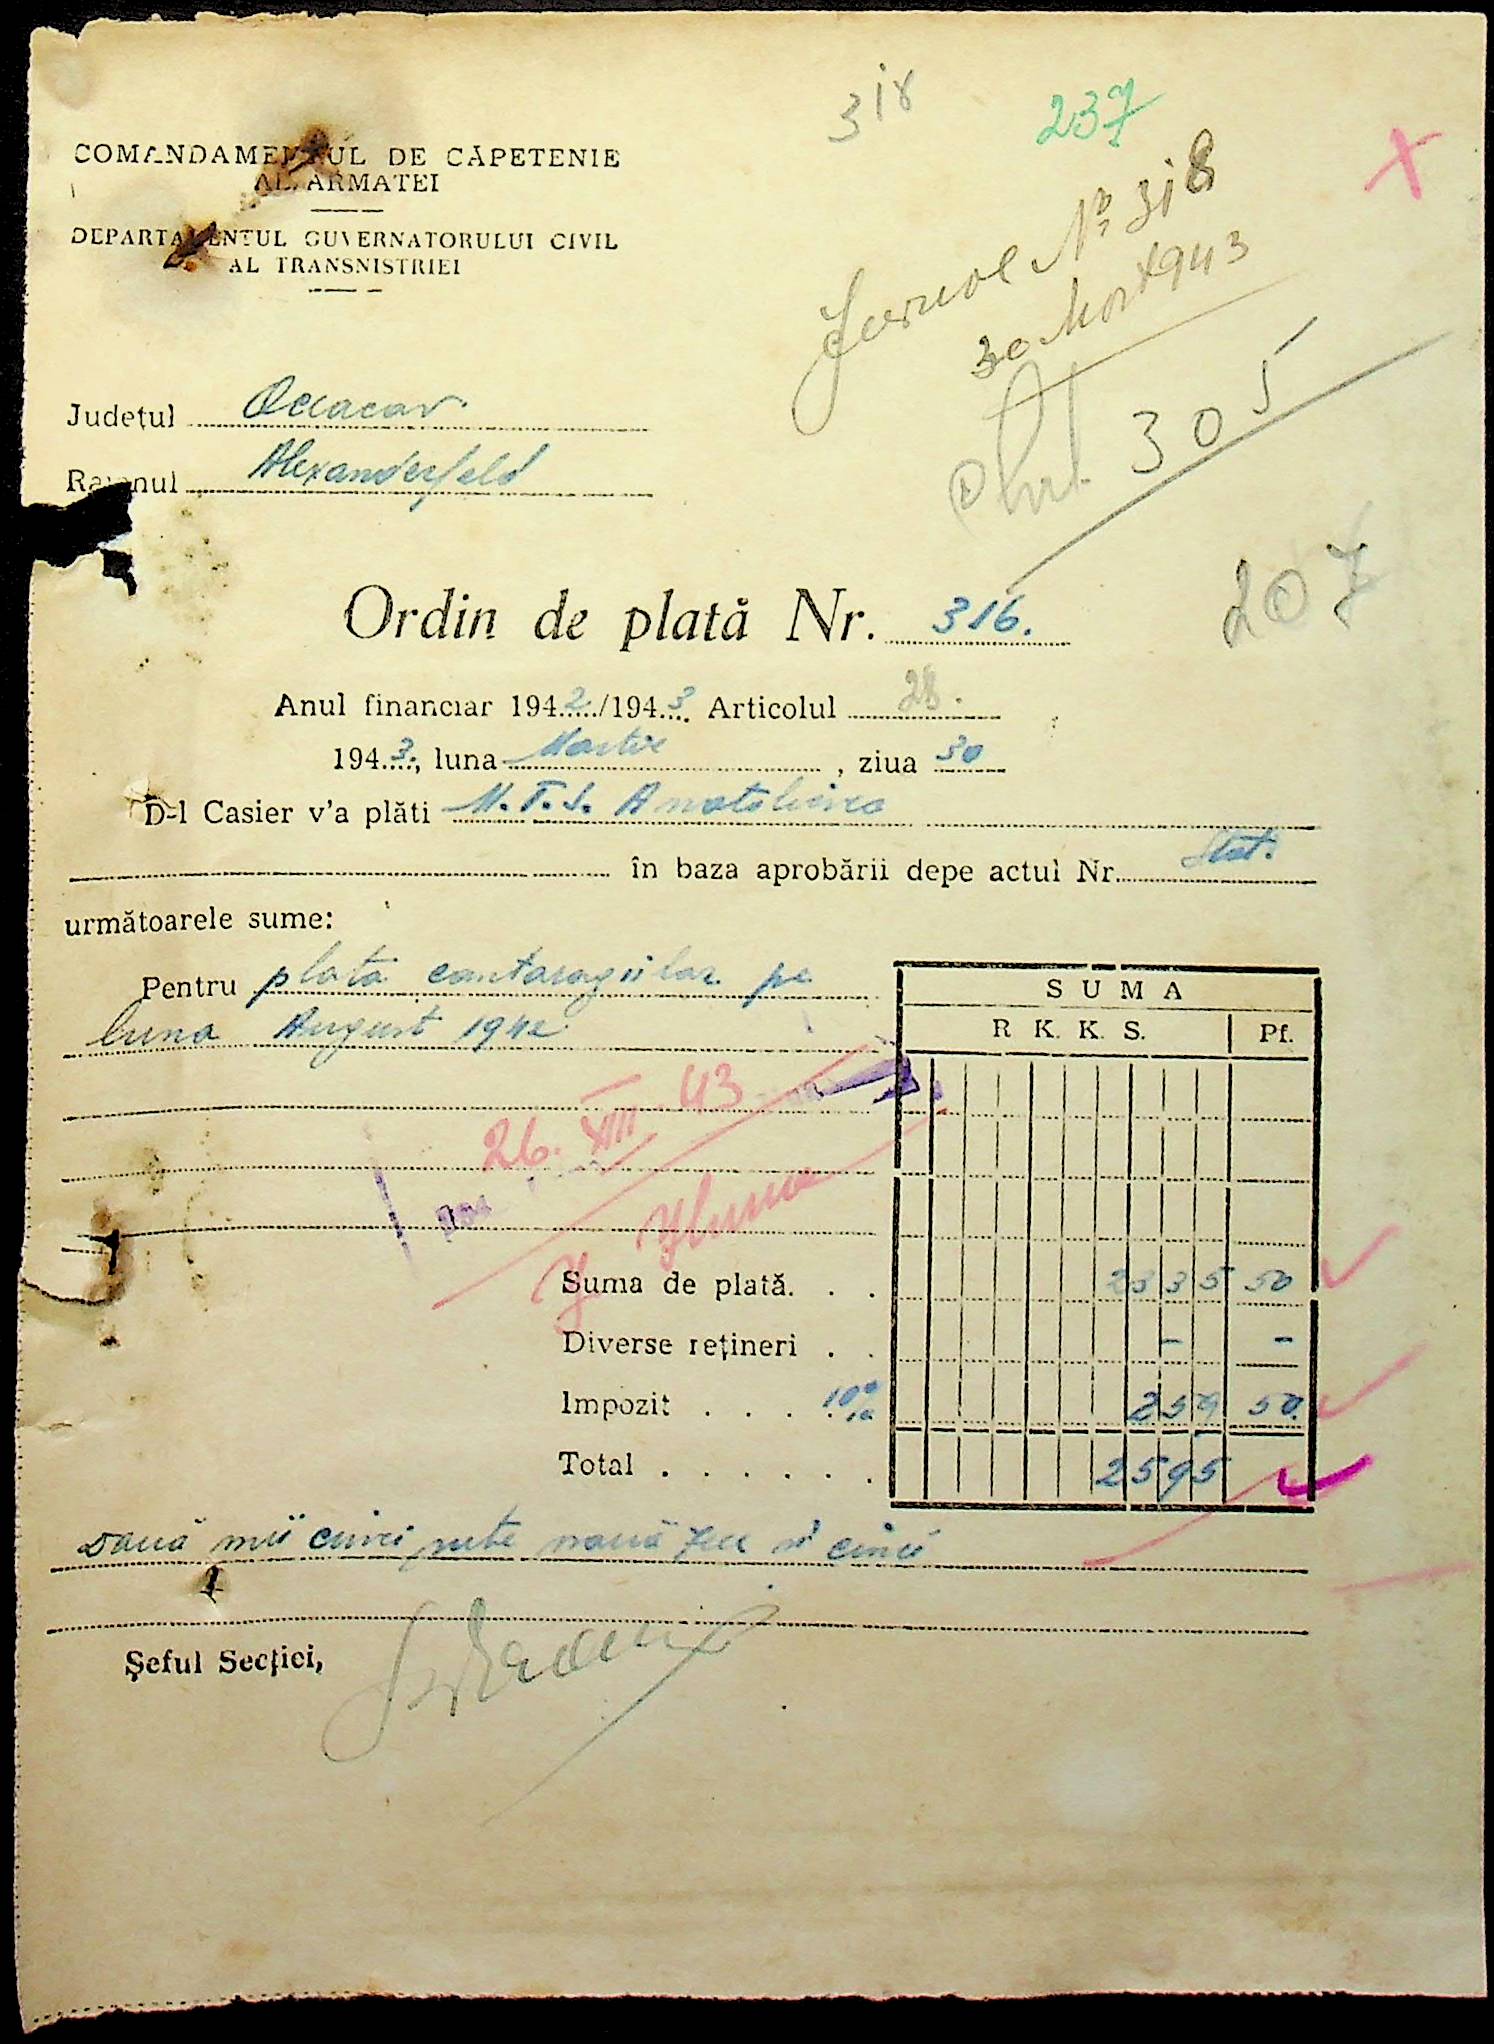 318
237
COMANDAMENTUL DE CĂPETENIE
AL ARMATEI
DEPARTAMENTUL GUVERNATORULUI CIVIL
AL TRANSNISTRIEI
Jurnal No 318
30 Mart 1943
305
Județul Oceacov
Raionul Alexanderfeld
207
Ordin de plată Nr. 316.
Anul financiar 1942/1943 Articolul 28.
1943, luna Martie, ziua 30
D-l Casier v'a plăti M.T.S. Anatolievca
în baza aprobării depe actul Nr. Stat.
următoarele sume:
Pentru plata cantaragiilor pe
luna August 1942
SUMA
R. K. K. S. Pf.
26. XIII. 43
Suma de plată. . . 2335 50
Diverse rețineri . . - -
Impozit . . . 10% 259 50.
Total . . . . . . 2595
Două mii cinci sute nouă zeci și cinci
Șeful Secției,